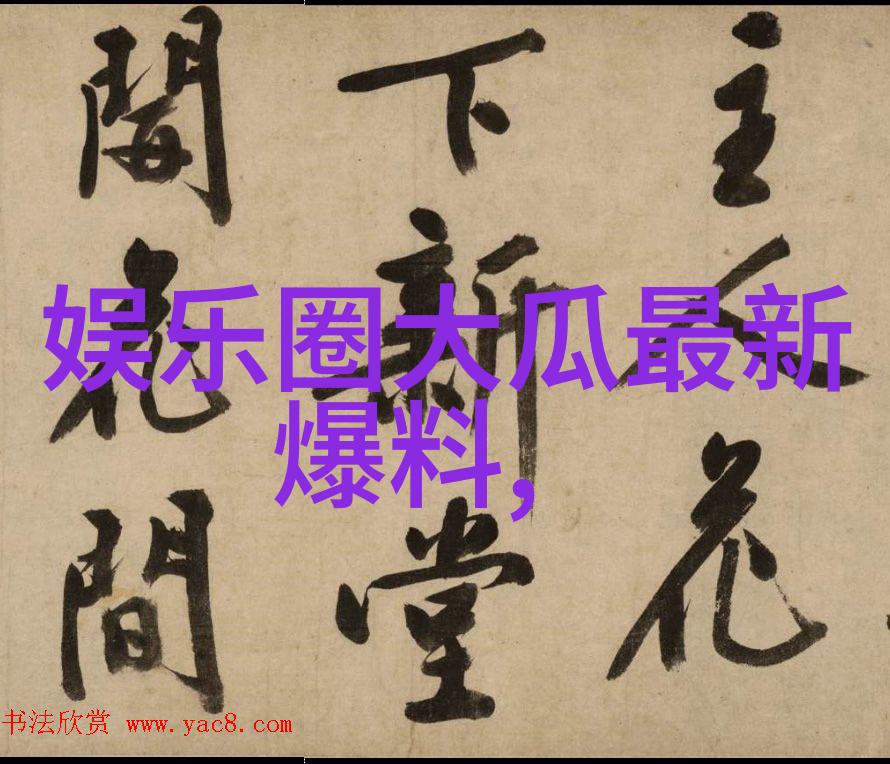 主人花
下新堂
間
娱乐圈大瓜最新
爆料,
书法欣赏 www.yac8.com